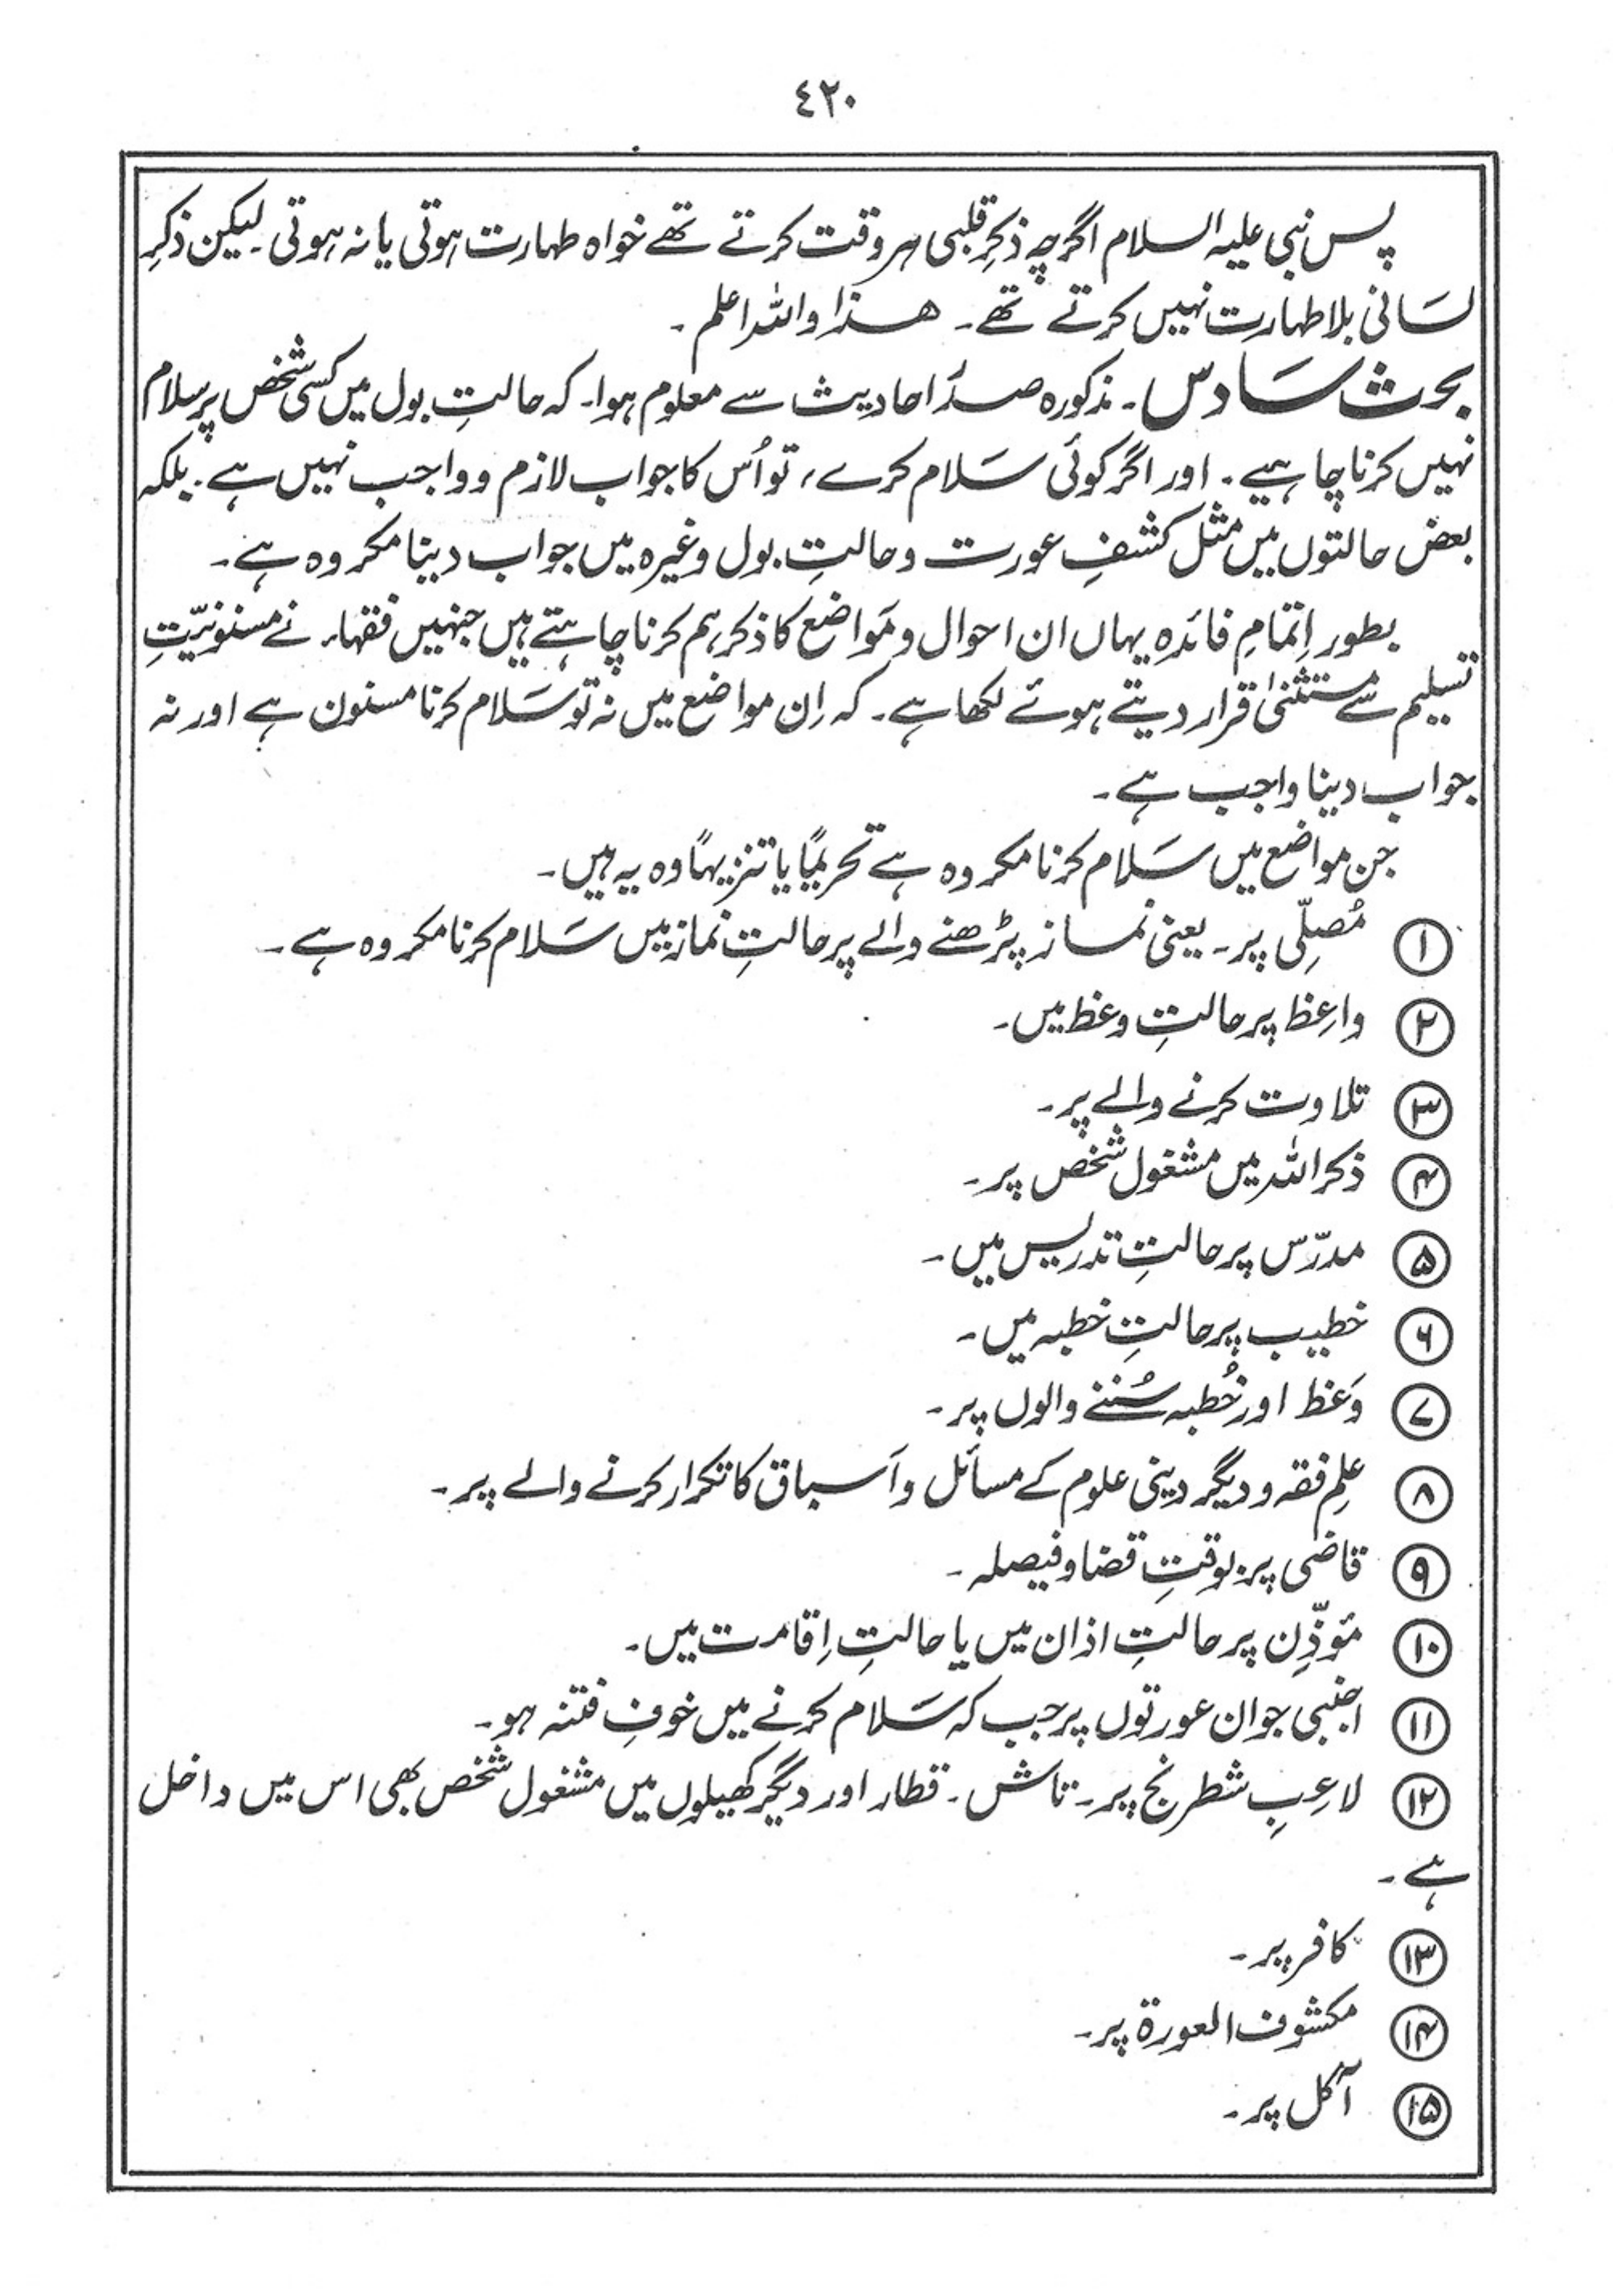 ٤٢٠
پس نبی علیہ السلام اگرچہ ذکرِ قلبی ہر وقت کرتے تھے خواہ طہارت ہوتی یا نہ ہوتی۔ لیکن ذکرِ
لسَانی بلا طہارت نہیں کرتے تھے۔ ھذا واللہ اعلم۔
بحث سَادس۔ مذکورہ صدر احادیث سے معلوم ہوا۔ کہ حالتِ بول میں کسی شخص پر سلام
نہیں کرنا چاہیے۔ اور اگر کوئی سَلام کرے، تو اُس کا جواب لازم و واجب نہیں ہے۔ بلکہ
بعض حالتوں میں مثل کشفِ عورت و حالتِ بول وغیرہ میں جواب دینا مکروہ ہے۔
بطور اِتمامِ فائدہ یہاں ان احوال و مَواضع کا ذکر ہم کرنا چاہتے ہیں جنہیں فقہاء نے مسنونیّتِ
تسلیم سے مستثنیٰ قرار دیتے ہوئے لکھا ہے۔ کہ اِن مواضع میں نہ تو سَلام کرنا مسنون ہے اور نہ
جواب دینا واجب ہے۔
جن مواضع میں سَلام کرنا مکروہ ہے تحریمًا یا تنزیہًا وہ یہ ہیں۔
۱ مُصلِّی پر۔ یعنی نماز پڑھنے والے پر حالتِ نماز میں سَلام کرنا مکروہ ہے۔
۲ واعِظ پر حالتِ وعظ میں۔
۳ تلاوت کرنے والے پر۔
۴ ذکر اللہ میں مشغول شخص پر۔
۵ مدرّس پر حالتِ تدریس میں۔
۶ خطیب پر حالتِ خطبہ میں۔
۷ وَعظ اور خُطبہ سُننے والوں پر۔
۸ عِلم فقہ و دیگر دینی علوم کے مسائل و اَسباق کا تکرار کرنے والے پر۔
۹ قاضی پر بوقتِ قضا و فیصلہ۔
۱۰ مؤذِّن پر حالتِ اذان میں یا حالتِ اِقامت میں۔
۱۱ اجنبی جوان عورتوں پر جب کہ سَلام کرنے میں خوفِ فتنہ ہو۔
۱۲ لاعِبِ شطرنج پر۔ تاش۔ قطار اور دیگر کھیلوں میں مشغول شخص بھی اس میں داخل
ہے۔
۱۳ کافر پر۔
۱۴ مکشوف العورۃ پر۔
۱۵ آکل پر۔